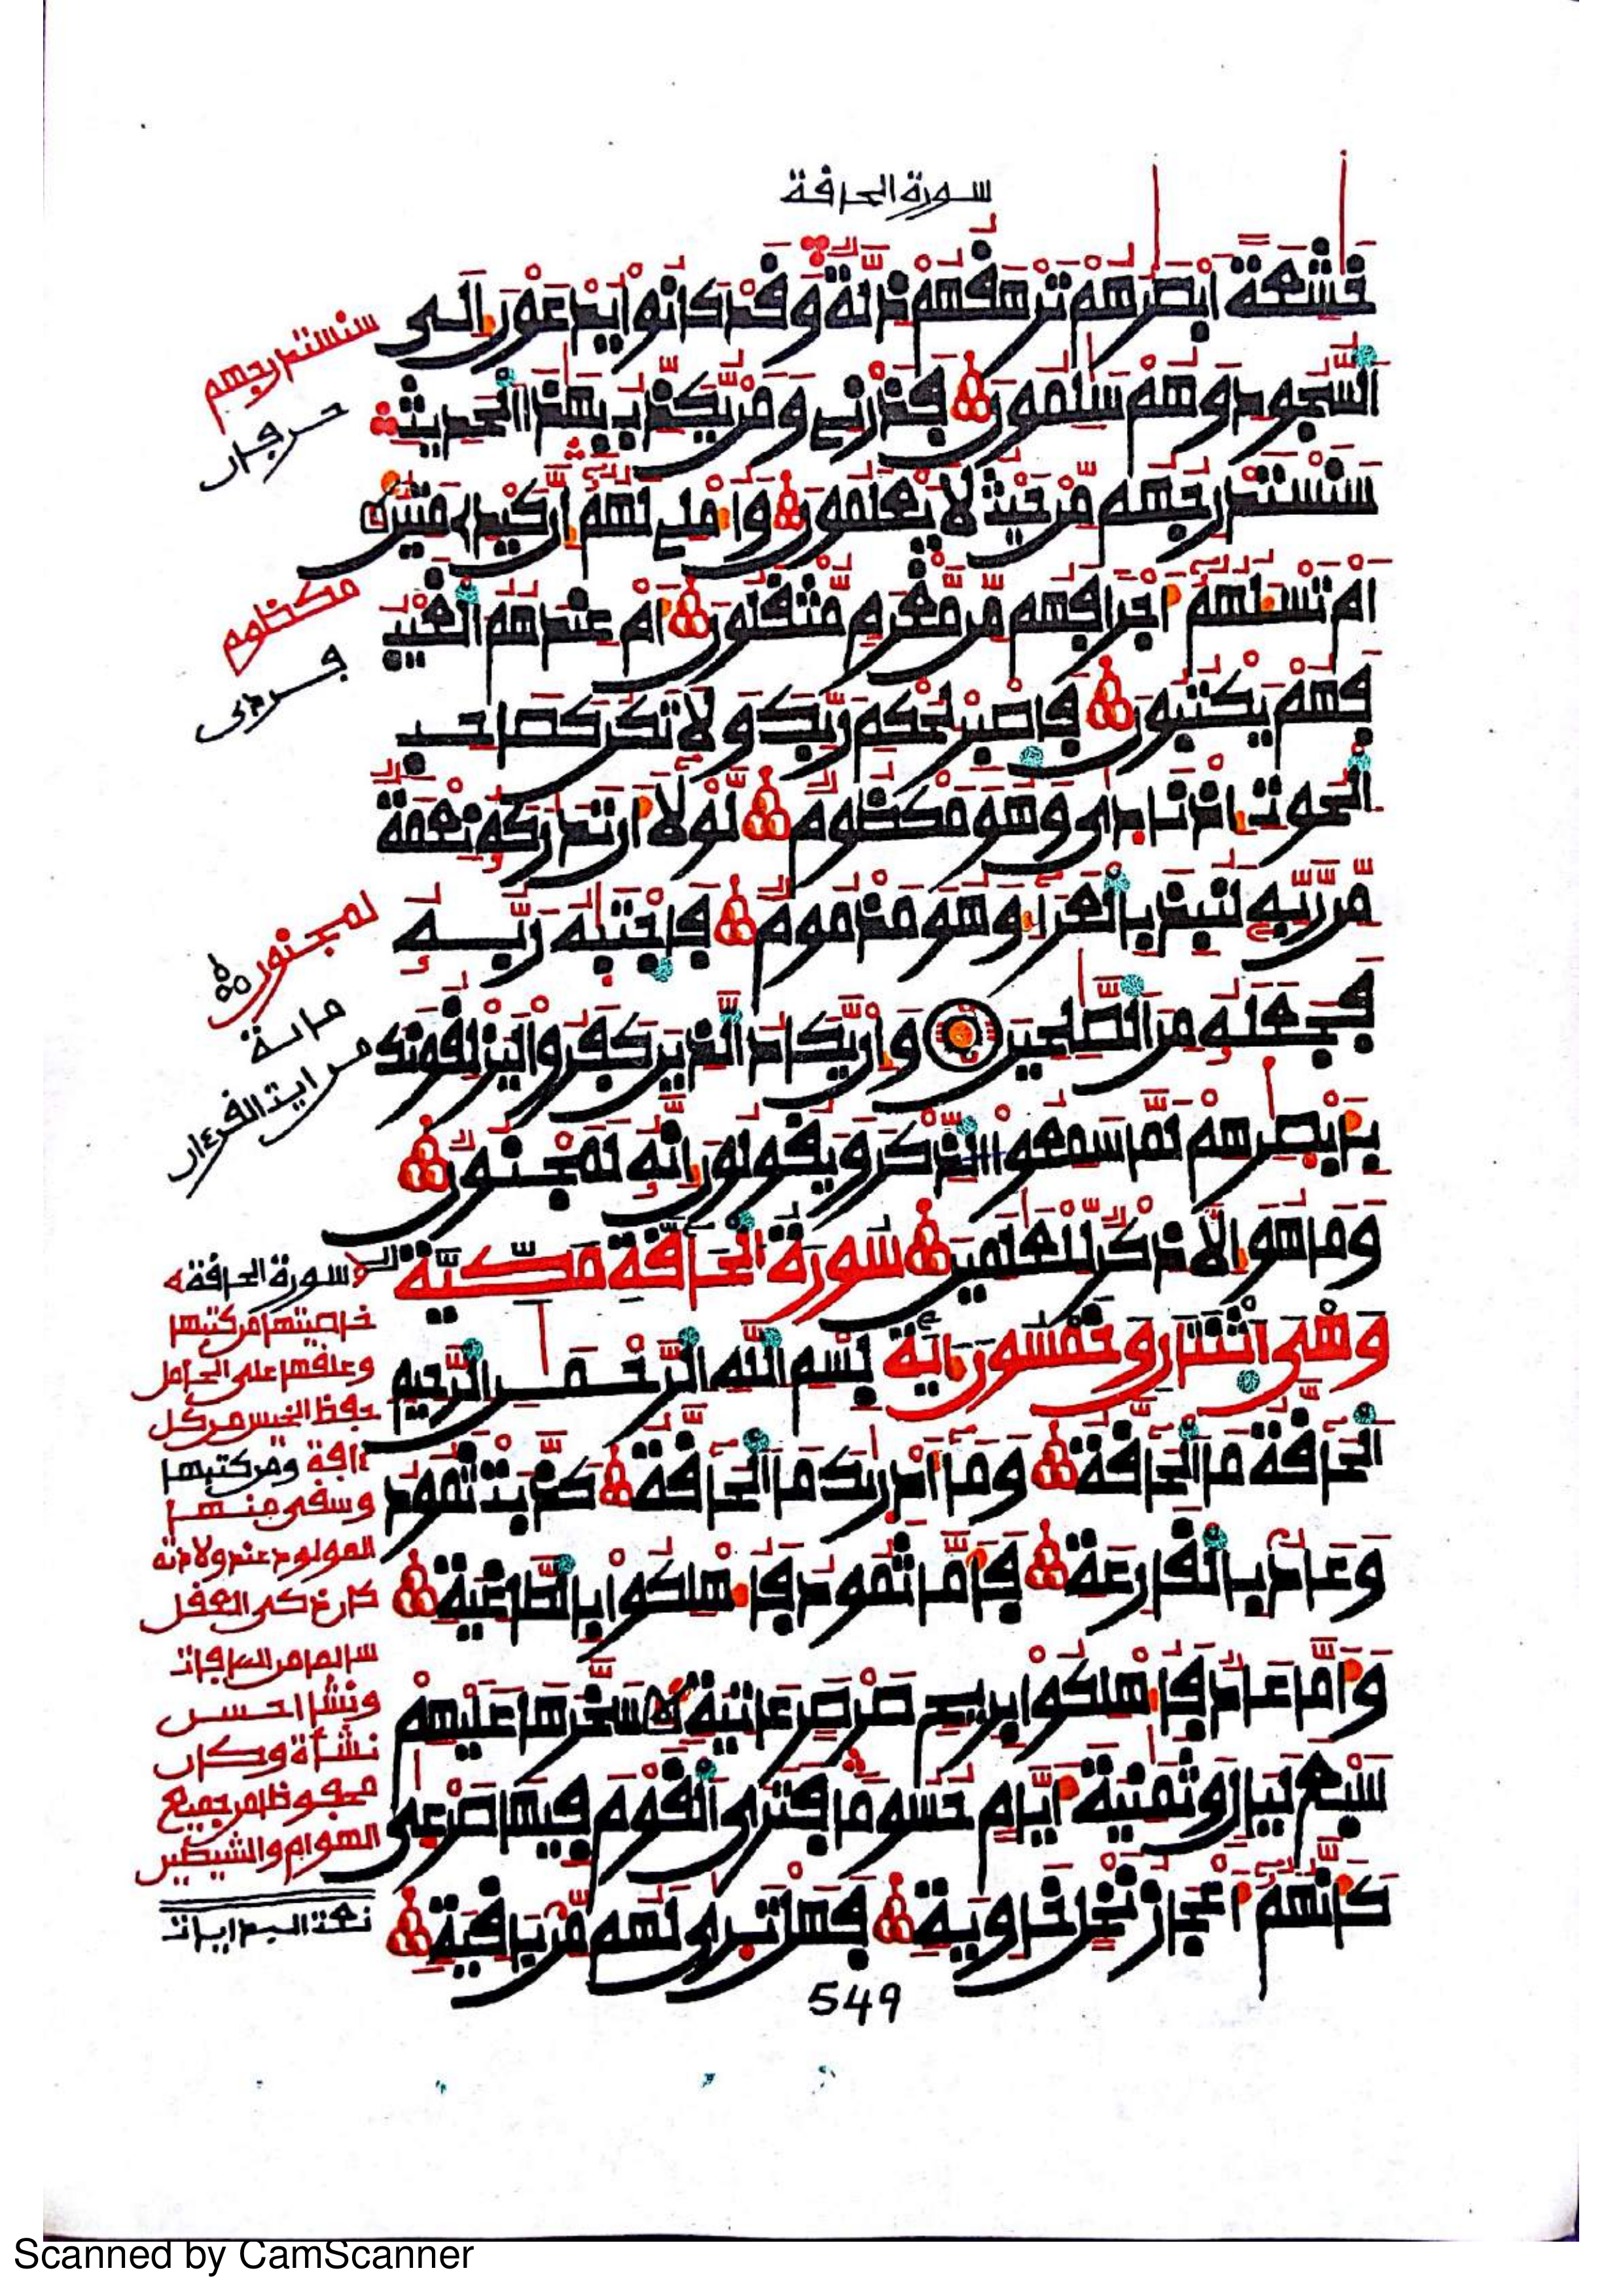 سورة الحافة
خشعة ابصرهم ترهفهم ذلة وفد كانوا يدعون الى
السجود وهم سلمون فذرنے ومن يكذب بهذا الحديث
سنستدرجهم من حيث لا يعلمون واملے لهم ان كيدے متين
ام تسلهم اجرا فهم من مغرم مثفلون ام عندهم الغيب
فهم يكتبون فاصبر لحكم ربك ولا تكن كصاحب
الحوت اذ نادى وهو مكظوم لولا ان تدركه نعمة
من ربه لنبذ بالعرا وهو مذموم فاجتبيه ربه
فجعله من الصلحين وان يكاد الذين كفروا ليزلفونك
بابصرهم لما سمعوا الذكر ويفولون انه لمجنون
وما هو الا ذكر للعلمين سورة الحافة مكية
وهى اثنتان وخمسون اية بسم الله الرحمن الرحيم
الحافة ما الحافة وما ادريك ما الحافة كذبت ثمود
وعاد بالفارعة فاما ثمود فاهلكوا بالطاغية
واما عاد فاهلكوا بريح صرصر عاتية سخرها عليهم
سبع ليال وثمنية ايام حسوما فترى الفوم فيها صرعى
كانهم اعجاز نخل خاوية فهل ترى لهم من بافية
549
سنستدرجهم
حرفان
مكظوم
فردى
لمجنون
مائة
من اية الفرءان
سورة الحافة
خاصيتها من كتبها
وعلفها على الحامل
حفظ الجنين من كل
ءافة ومن كتبها
وسفى منها
المولود عند ولادته
كان ذكى العفل
سالما من العافات
ونشا احسن
نشأة وكان
محفوظا من جميع
الهوام والشيطين
Scanned by CamScanner